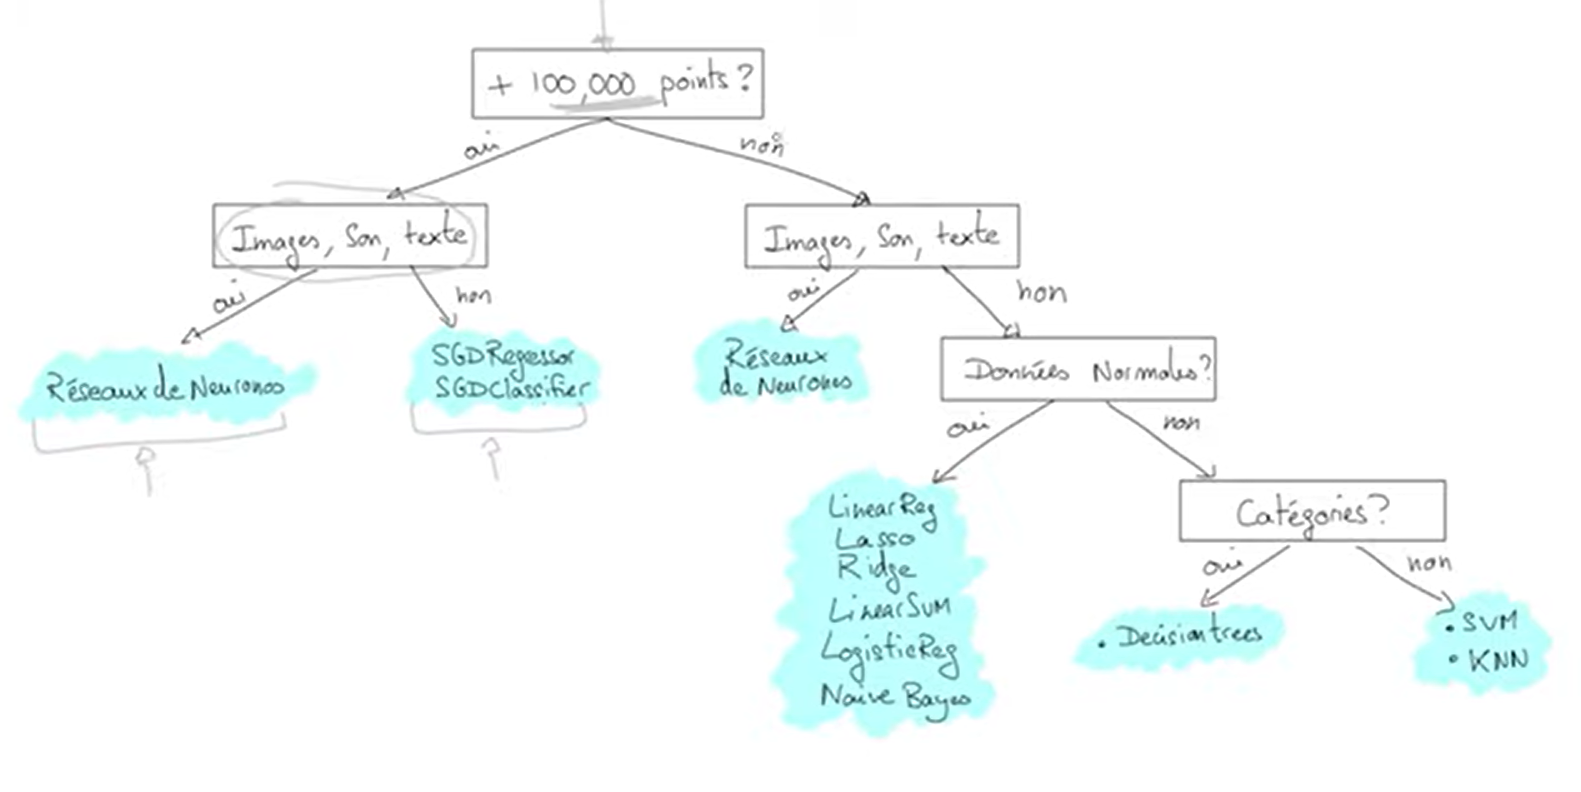 + 100,000 points?
oui
non
Images, Son, texte
Images, Son, texte
oui
non
oui
non
Réseaux de Neurones
SGDRegressor
SGDClassifier
Réseaux
de Neurones
Données Normales?
oui
non
LinearReg
Lasso
Ridge
LinearSVM
LogisticReg
Naive Bayes
Catégories?
oui
non
• Decision trees
• SVM
• KNN